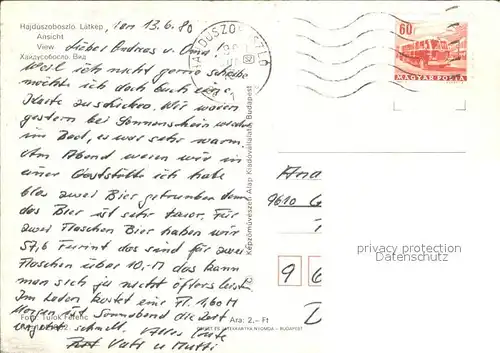 Hajdúszoboszló. Látkép
Ansicht
View
Хайдусобосло. Вид
den 13.6.80
Lieber Andreas u. Oma!
Weil ich nicht gerne schreibe
möchte ich doch euch eine
Karte zu schicken. Wir waren
gestern bei Sonnenschein wieder
im Bad, es war sehr warm.
Am Abend waren wir in
einer Gaststätte ich habe
blos zwei Bier getrunken denn
das Bier ist sehr teuer. Für
zwei Flaschen Bier haben wir
57,6 Furint das sind für zwei
Flaschen über 10,-M das kann
man sich ja nicht öfters leisten
Im Laden kostet eine Fl. 1,60 M
Morgen ist Sonnabend die Zeit
vergeht schnell. Alles Gute
Vati u Mutti
Foto: Tulok Ferenc
Ara: 2,- Ft
Képzőművészeti Alap Kiadóvállalata, Budapest
HAJDUSZOBOSZLÓ
60
MAGYAR POSTA
9610
9 6
privacy protection
Datenschutz